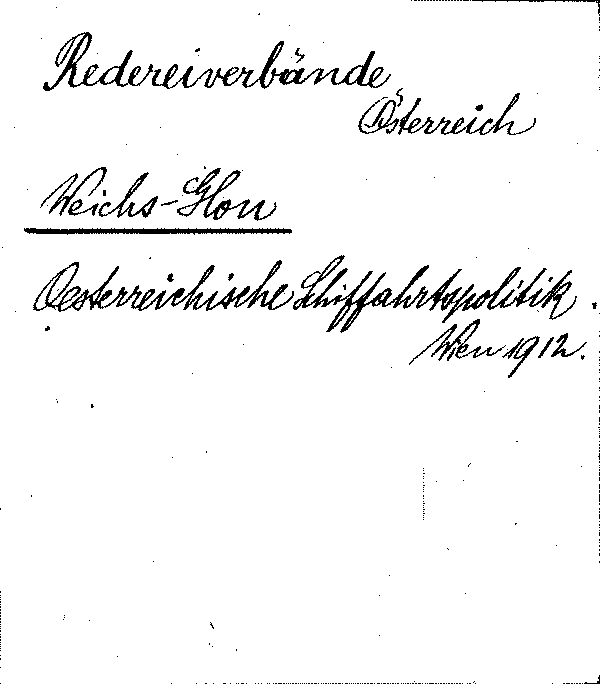 Redereiverbände
Österreich
Weichs-Glon
Oesterreichische Schiffahrtspolitik.
Wien 1912.